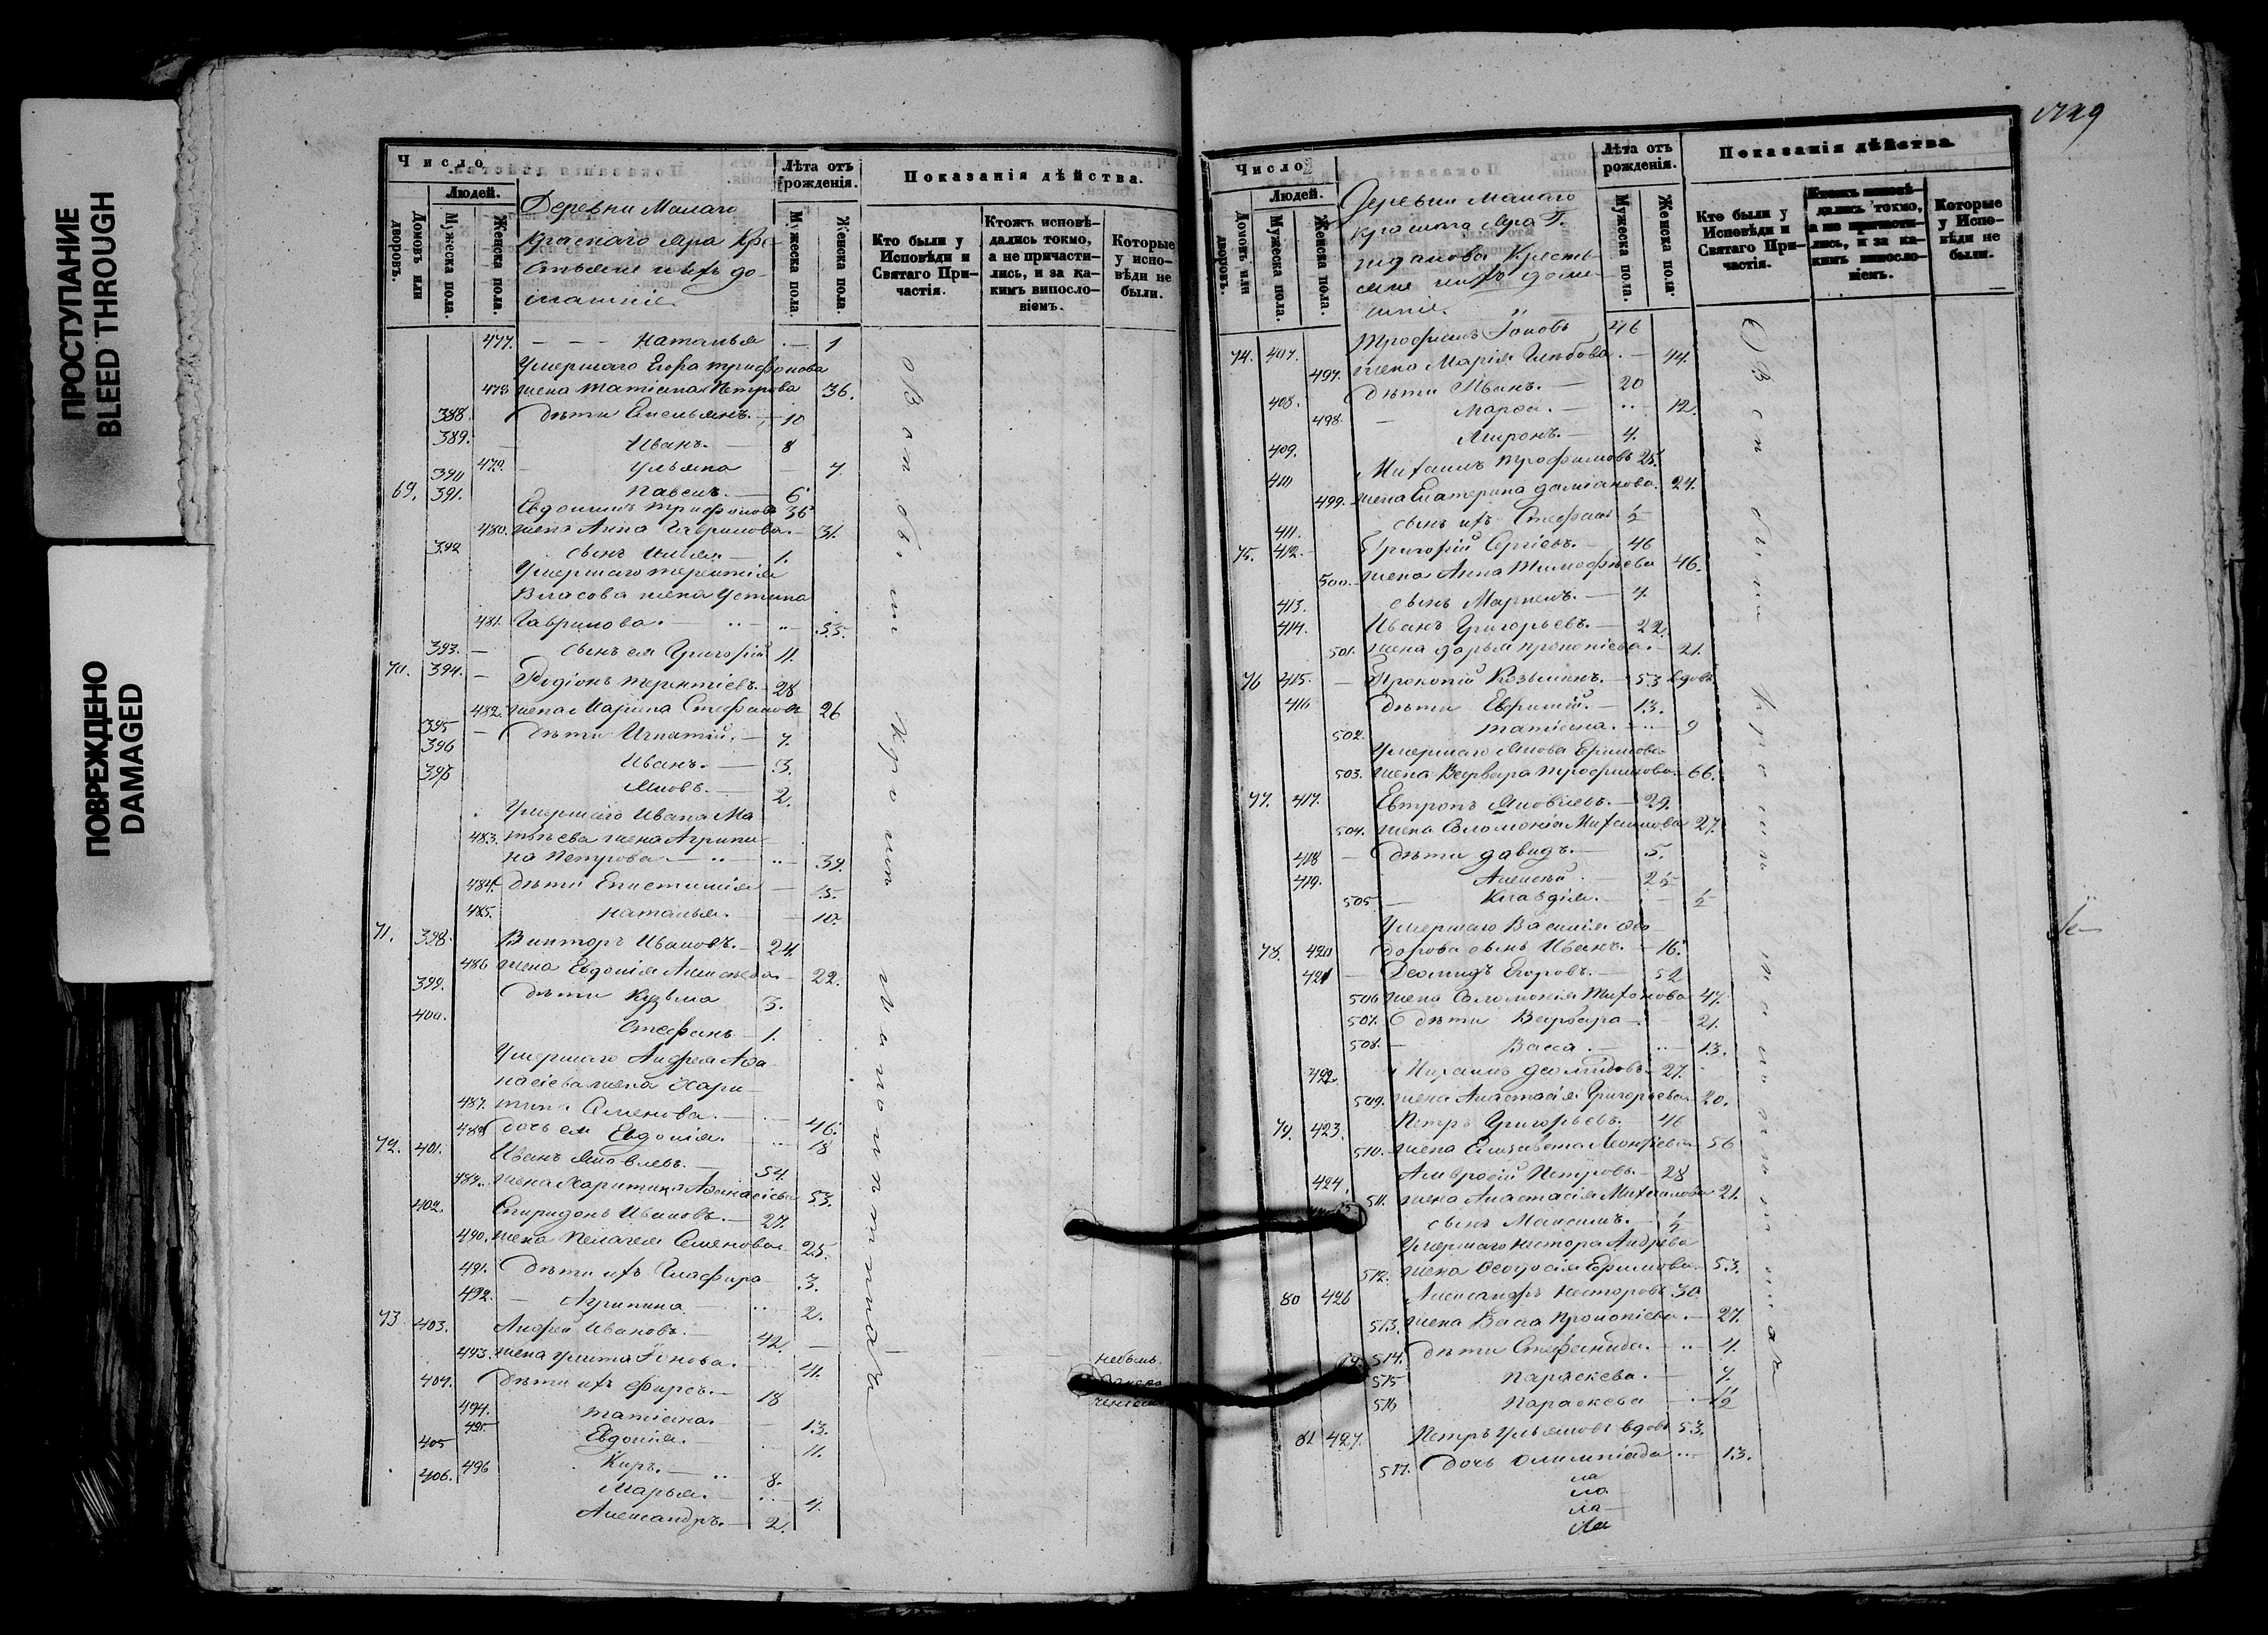 ПРОСТУПАНИЕ
BLEED THROUGH
ПОВРЕЖДЕНО
DAMAGED
Число
Людей.
Домовъ или дворовъ.
Мужеска пола.
Женска пола.
Деревни Малаго
Краснаго Яра Кре-
стьяне и ихъ до-
машніе.
Лѣта отъ рожденія.
Мужеска пола.
Женска пола.
Показанія дѣйства.
Кто были у Исповѣди и Святаго Причастія.
Ктожъ исповѣдались токмо, а не причастились, и за какимъ винословіемъ.
Которые у исповѣди не были.
477. Наталья 1
Умершаго Егора Трифонова
478 жена Татіана Петрова 36.
388. дѣти Емельянъ. 10
389. Иванъ. 8
479. Ульяна 7
390 Павелъ. 6
69. 391. Евдокимъ Трифоновъ 36
480. жена Анна Гаврилова. 31.
392 сынъ Илья. 1.
Умершаго Терентія
Власова жена Устина
481. Гаврилова. 55.
393. сынъ ея Григорій 11.
70. 394. Родіонъ Терентіевъ. 28
482. жена Марина Стефанова 26
395 дѣти Игнатій. 7.
396 Иванъ. 3.
397 Яковъ. 2.
Умершаго Ивана Ма
483. тѣева жена Агрипи-
на Петрова 39.
484. дѣти Епистимія 15.
485. Наталья. 10.
71. 398. Викторъ Ивановъ. 24.
486 жена Евдокія Алексѣева 22.
399. дѣти Кузьма 3.
400. Стефанъ 1.
Умершаго Андрея Аѳа
насіева жена Хари
487. тина Семенова. 46.
488 дочь ея Евдокія. 18
72. 401. Иванъ Яковлевъ. 54.
489. жена Харитина Аѳанасіева 53.
402. Спиридонъ Ивановъ. 27.
490. жена Пелагея Семенова 25.
491. дѣти ихъ Глафира 3.
492. Агрипина 2.
73. 403. Андрей Ивановъ. 42.
493. жена Улита Іонова. 41.
404. дѣти ихъ Фирсъ. 18
494. Татіана. 13.
495. Евдокія. 11.
405 Киръ. 8.
496 Марья. 4.
406. Александръ. 2.
небылъ
1729
Число
Людей.
Домовъ или дворовъ.
Мужеска пола.
Женска пола.
Деревни Малаго
Краснаго Яра Г.
Жданова Кресть-
яне и ихъ дома-
шніе.
Лѣта отъ рожденія.
Мужеска пола.
Женска пола.
Показанія дѣйства.
Кто были у Исповѣди и Святаго Причастія.
Ктожъ исповѣдались токмо, а не причастились, и за какимъ винословіемъ.
Которые у Исповѣди не были.
74. 407. Трофимъ Іоновъ 46
497. жена Марія Глѣбова. 44.
408. дѣти Иванъ. 20
498. Марѳа. 12.
409. Миронъ. 4.
410 Михаилъ Трофимовъ 25.
499. жена Екатерина Даміанова. 24.
411. сынъ ихъ Стефанъ ½
75. 412. Григорій Сергіевъ. 46
500. жена Анна Тимофѣева 46.
413. сынъ Маркелъ. 4.
414. Иванъ Григорьевъ. 22.
501. жена Дарья Прокопіева. 21.
76 415. Прокопій Козьминъ. 53 вдовъ
416 дѣти Евфимій. 13.
502. Татіана. 9
Умершаго Якова Ефимова
503. жена Варвара Трофимова 66.
77. 417. Евтропъ Яковлевъ. 29.
504. жена Соломонія Михаилова 27.
418 дѣти Давидъ. 5.
419. Алексѣй 2½
505 Клавдія. ½
Умершаго Василія Ѳео
78. 420 дорова сынъ Иванъ. 16.
421 Деомидъ Егоровъ. 52
506 жена Соломонія Тихонова 47.
507. дѣти Варвара 21.
508. Васса. 13.
422. Михаилъ Деомидовъ. 27.
509. жена Анастасія Григорьева 20.
79. 423. Петръ Григорьевъ. 46
510. жена Елизавета Леонтіева 56
424. Амвросій Петровъ. 28
511. жена Анастасія Михаилова 21.
сынъ Максимъ. ½
Умершаго Нестора Андрѣева
512. жена Ѳеодосія Ефимова. 53.
80 426 Александръ Несторовъ 30.
513. жена Васса Прокопіева. 27.
514. дѣти Стефанида. 4.
515 Параскева. 7.
516 Параскева 1½
81 427. Петръ Ульяновъ вдовъ 53.
517. дочь Олимпіада 13.